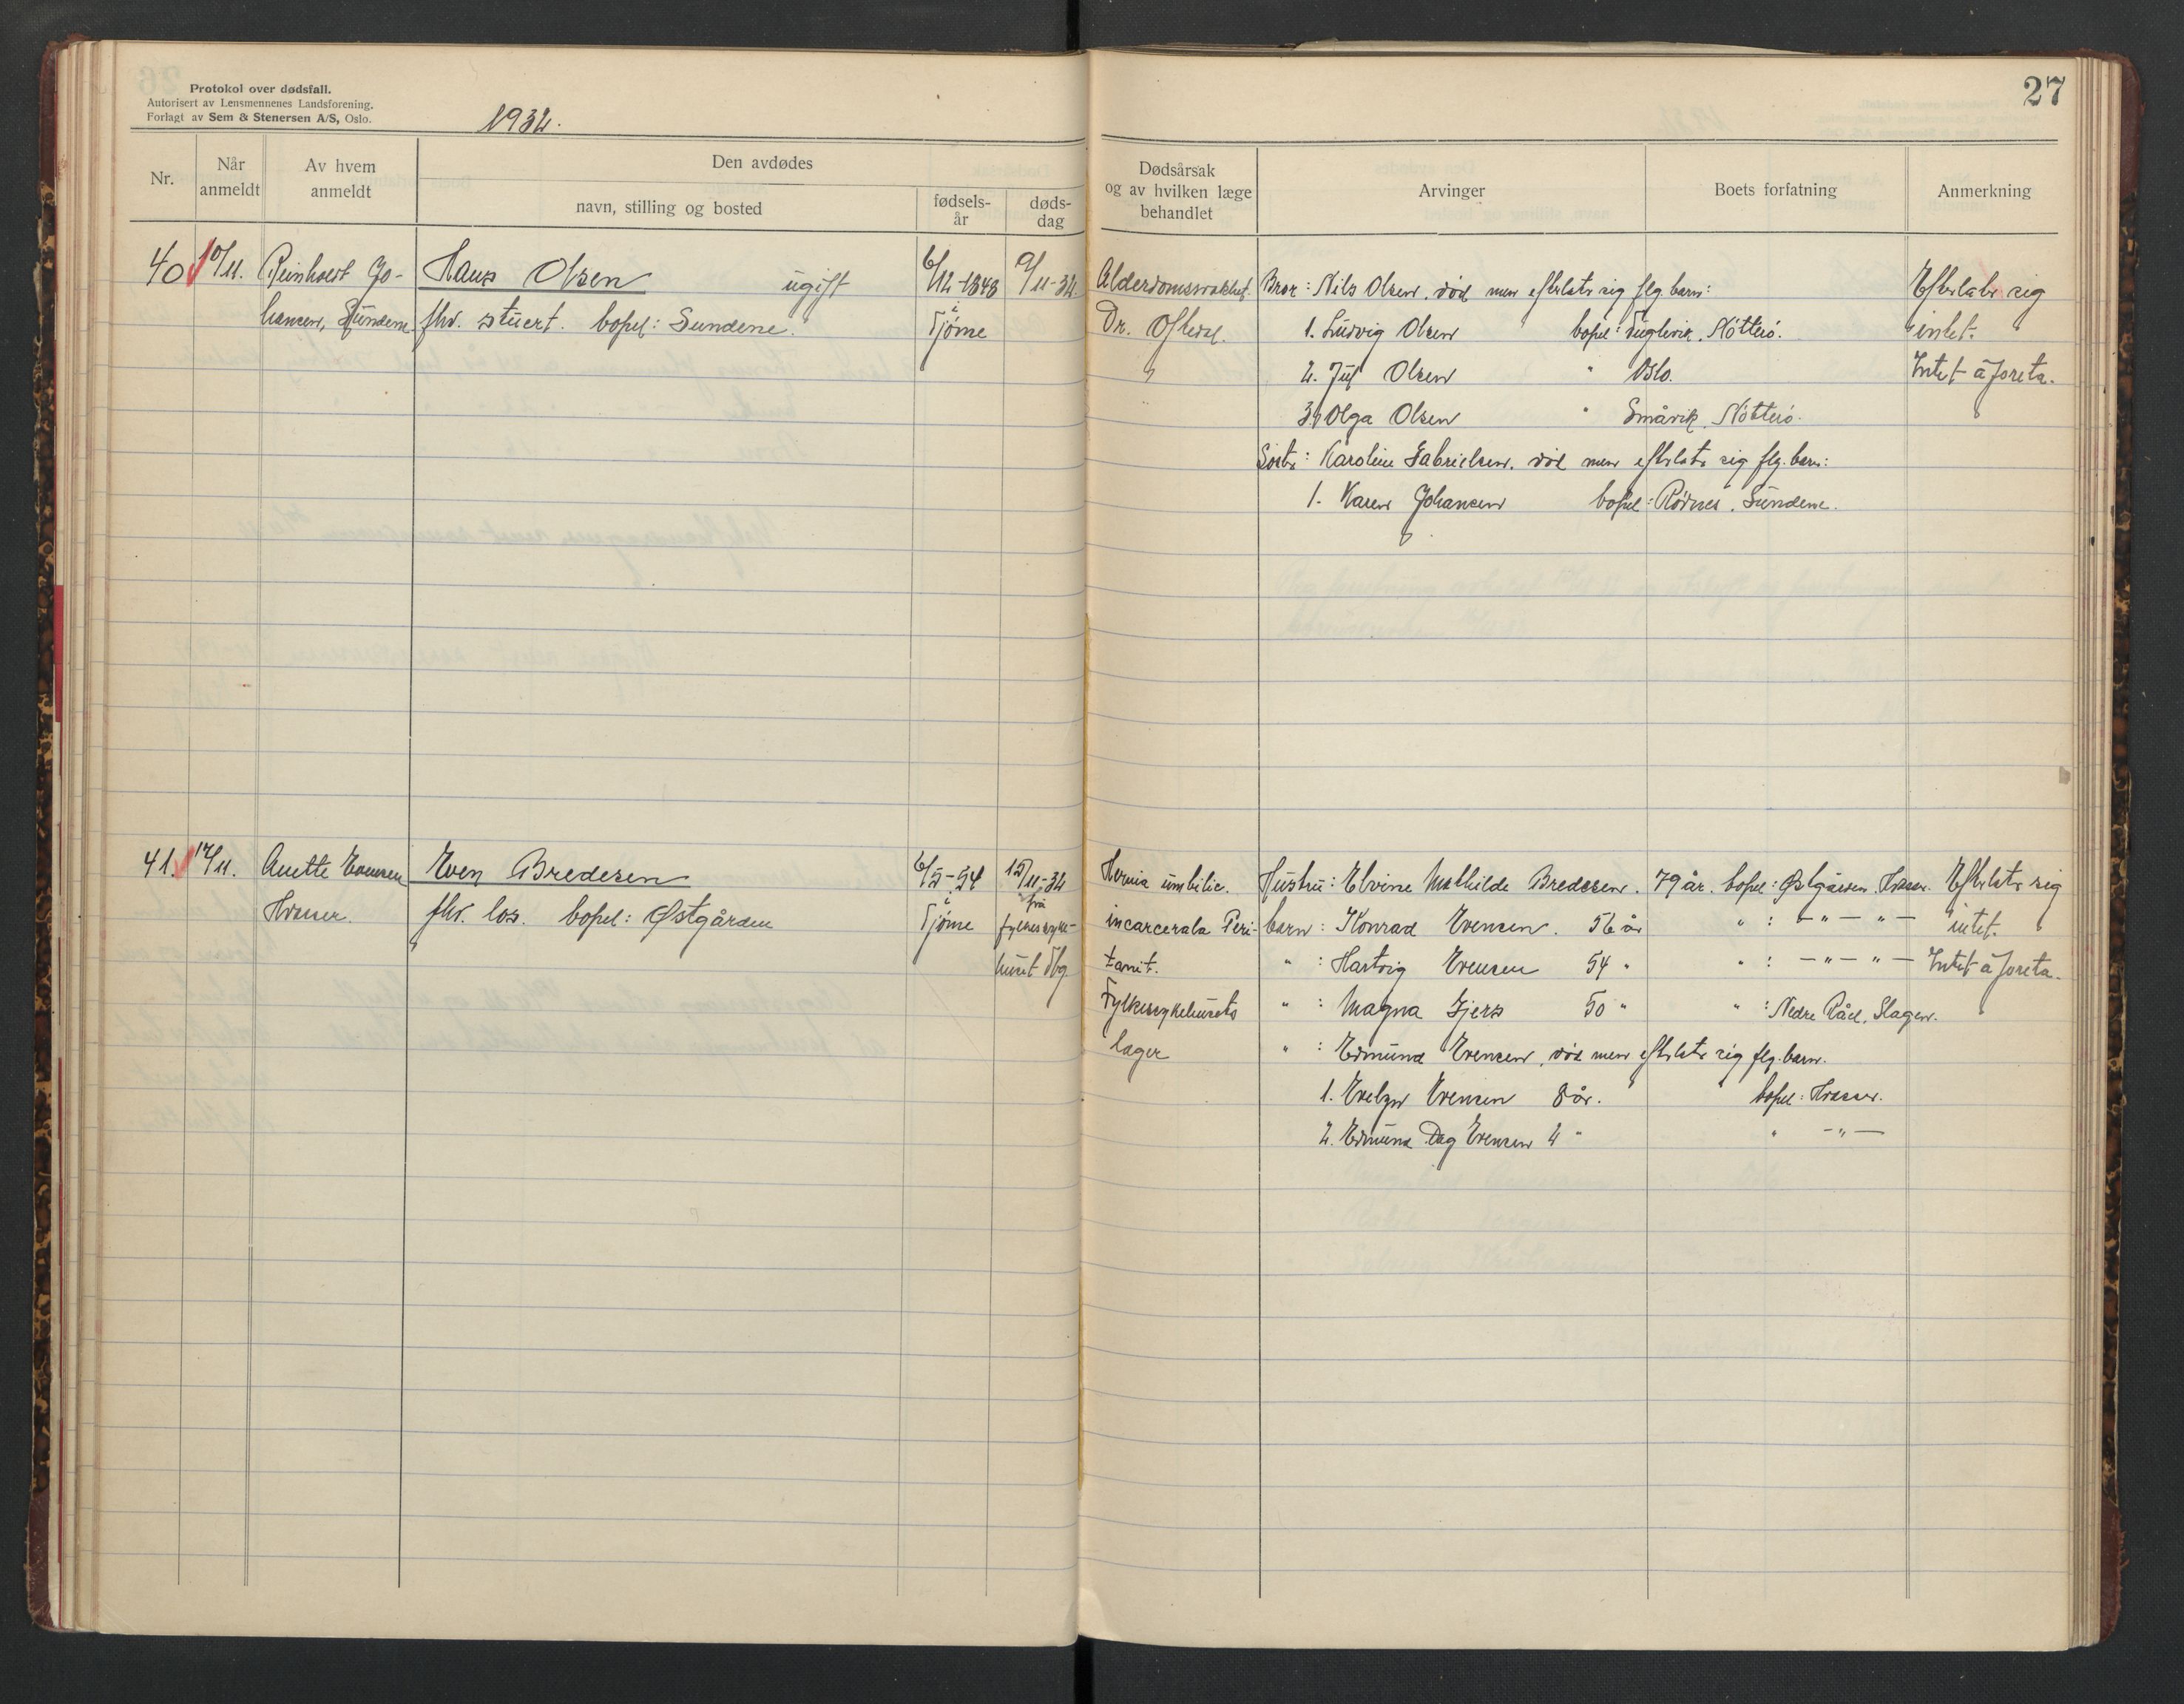 Protokol over dødsfall.
Autorisert av Lensmennenes Landsforening.
Forlagt av Sem & Stenersen A/S, Oslo.
1932.
27
Nr.
Når anmeldt
Av hvem anmeldt
Den avdødes
navn, stilling og bosted
fødsels-år
døds-dag
Dødsårsak og av hvilken læge behandlet
Arvinger
Boets forfatning
Anmerkning
40 10/11. Reinhardt Jo- Hans Olsen ugift 6/12-1848 9/11-32. Alderdomssvakhet. Bror: Nils Olsen, død men efterlater sig flg. barn: Efterlater sig
hansen, Sundene fhv. stuert. bopel: Sundene. Tjøme Dr. Oftedal. 1. Ludvig Olsen bopel: Vuglevik, Nøtterö. intet.
2. Jul Olsen " Oslo. Intet å foreta.
3. Olga Olsen " Småvik, Nøtterö.
Søster: Karoline Gabrielsen, død men efterlater sig flg. barn:
1. Karen Johansen bopel: Rødnes, Sundene.
41. 17/11. Anette Evensen Even Bredesen 6/5-54 15/11-32 Hernia umbilic. Hustru: Elvine Mathilde Bredesen. 79 år. bopel: Østgården, Hvasser. Efterlater sig
Hvasser. fhv. los. bopel: Østgården Tjøme fra fylkessyke- incarcerata Peri- barn: Konrad Evensen. 56 år " : -"-"- intet.
huset Tbg. tonit. " : Hartvig Evensen 54 " " : -"-"- Intet å foreta.
Fylkessykehusets " : Magna Gjers 50 " " : Nedre Råel, Slagen.
læger " : Edmund Evensen, død men efterlater sig flg. barn.
1. Evelyn Evensen 8 år. bopel: Hvasser.
2. Edmund Dag Evensen 2 " " -"-